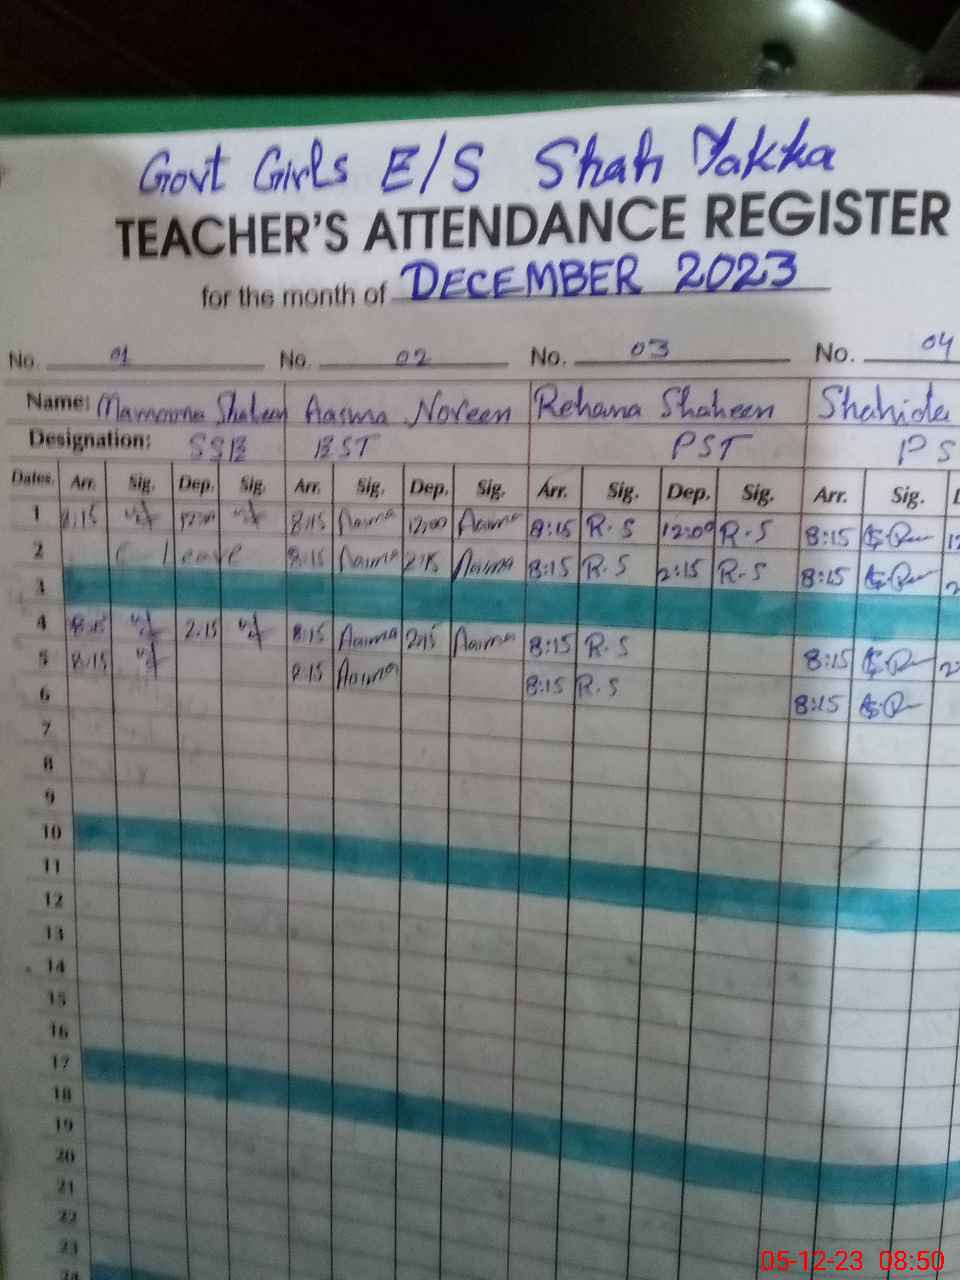 Govt Girls E/S Shah Yakka
TEACHER'S ATTENDANCE REGISTER
for the month of DECEMBER 2023
No. 01 No. 02 No. 03 No. 04
Name: Mamoona Shaheen Aasma Noreen Rehana Shaheen Shahida
Designation: SSE EST PST PS
Dates. Arr. Sig. Dep. Sig. Arr. Sig. Dep. Sig. Arr. Sig. Dep. Sig. Arr. Sig.
1 8:15 12:00 8:15 Aasma 12:00 Aasma 8:15 R.S 12:00 R.S 8:15
2 Leave 8:15 Aasma 2:15 Aasma 8:15 R.S 2:15 R.S 8:15
3
4 8:15 2:15 8:15 Aasma 2:15 Aasma 8:15 R.S 8:15
5 8:15 8:15 Aasma 8:15 R.S 8:15
6
7
8
9
10
11
12
13
14
15
16
17
18
19
20
21
22
23
24
05-12-23 08:50